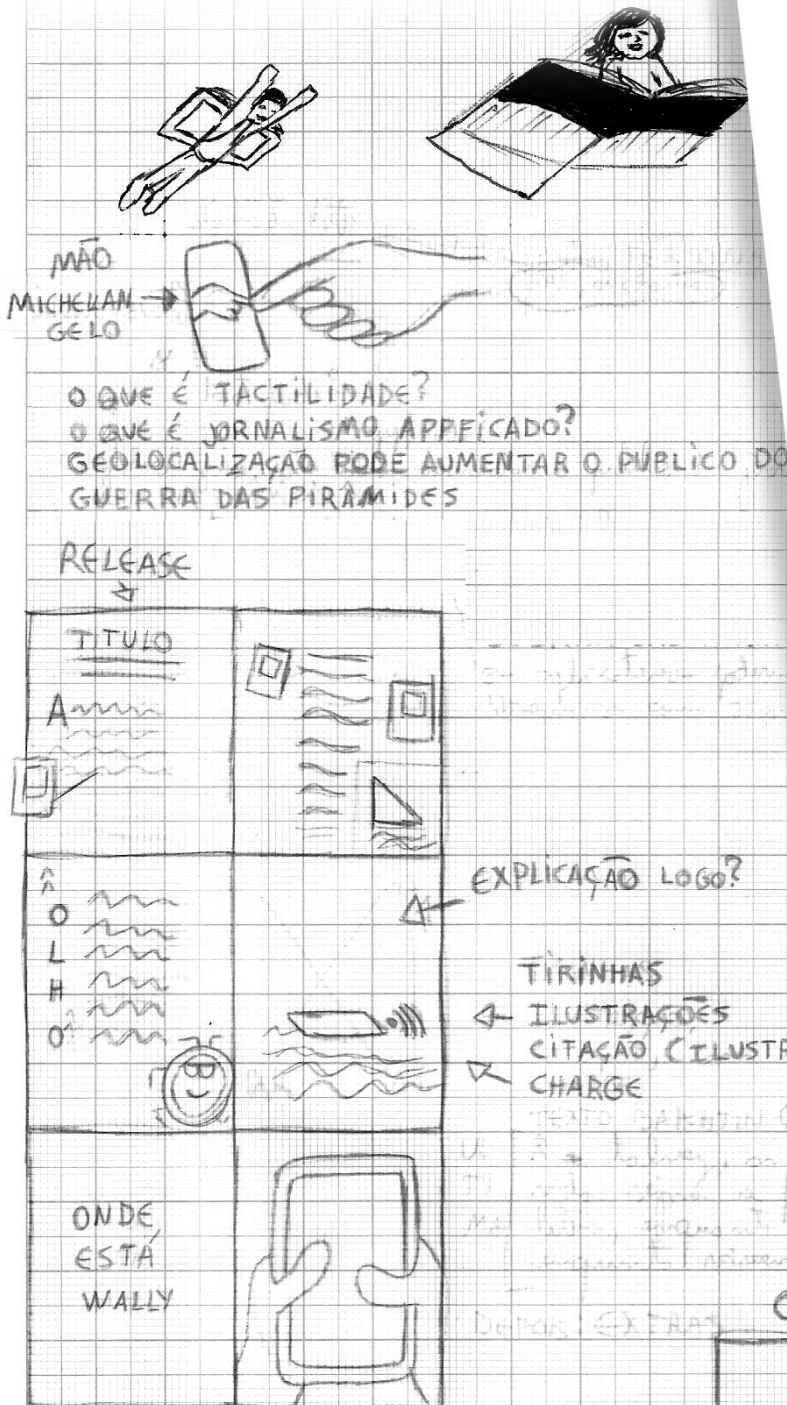 MÃO
MICHELAN
GELO
O QUE É TACTILIDADE?
O QUE É JORNALISMO APPFICADO?
GEOLOCALIZAÇÃO PODE AUMENTAR O PUBLICO DO
GUERRA DAS PIRÂMIDES
RELEASE
TITULO
A
EXPLICAÇÃO LOGO?
OLHO
TIRINHAS
ILUSTRAÇÕES
CITAÇÃO (ILUSTR
CHARGE
ONDE
ESTÁ
WALLY